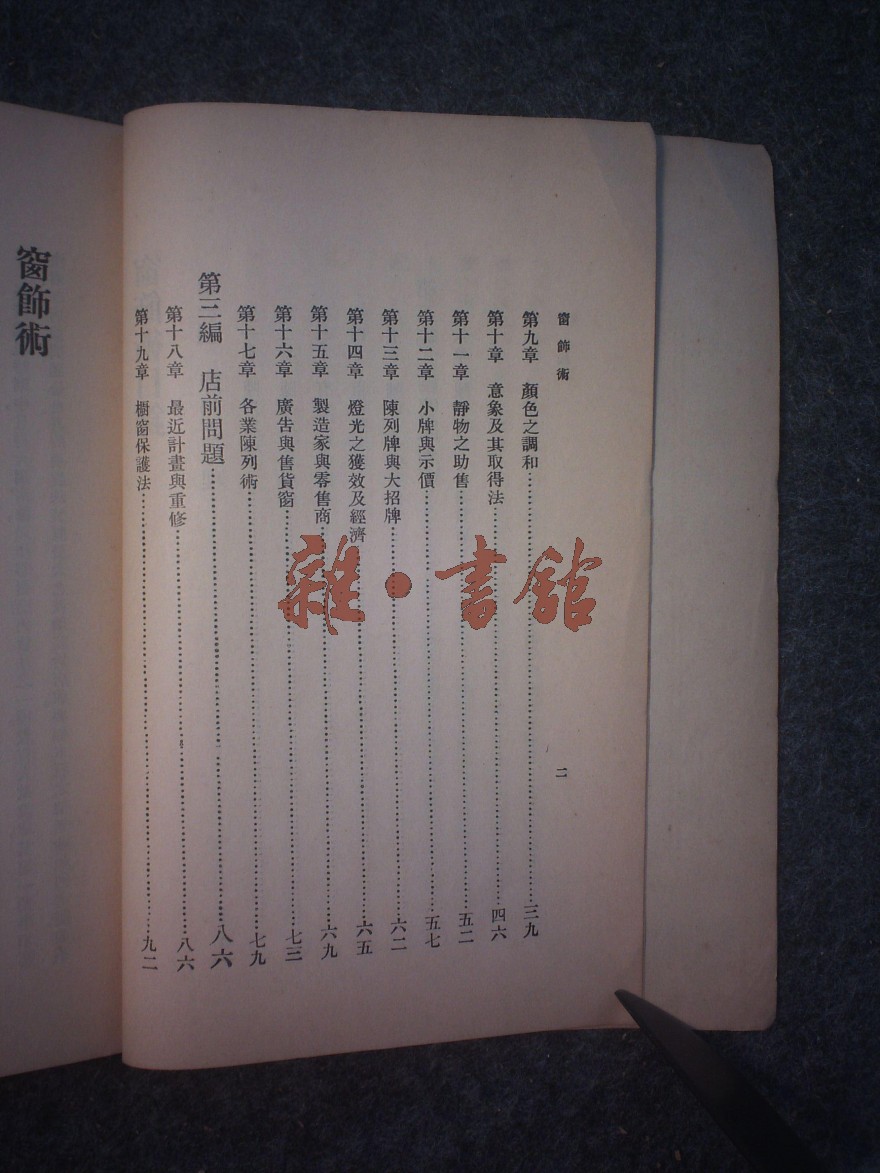 窗飾術
二
第九章 顏色之調和 三九
第十章 意象及其取得法 四六
第十一章 靜物之助售 五二
第十二章 小牌與示價 五七
第十三章 陳列牌與大招牌 六二
第十四章 燈光之獲效及經濟 六五
第十五章 製造家與零售商 六九
第十六章 廣告與售貨窗 七三
第十七章 各業陳列術 七九
第三編 店前問題 八六
第十八章 最近計畫與重修 八六
第十九章 櫥窗保護法 九二
窗飾術
雜·書館